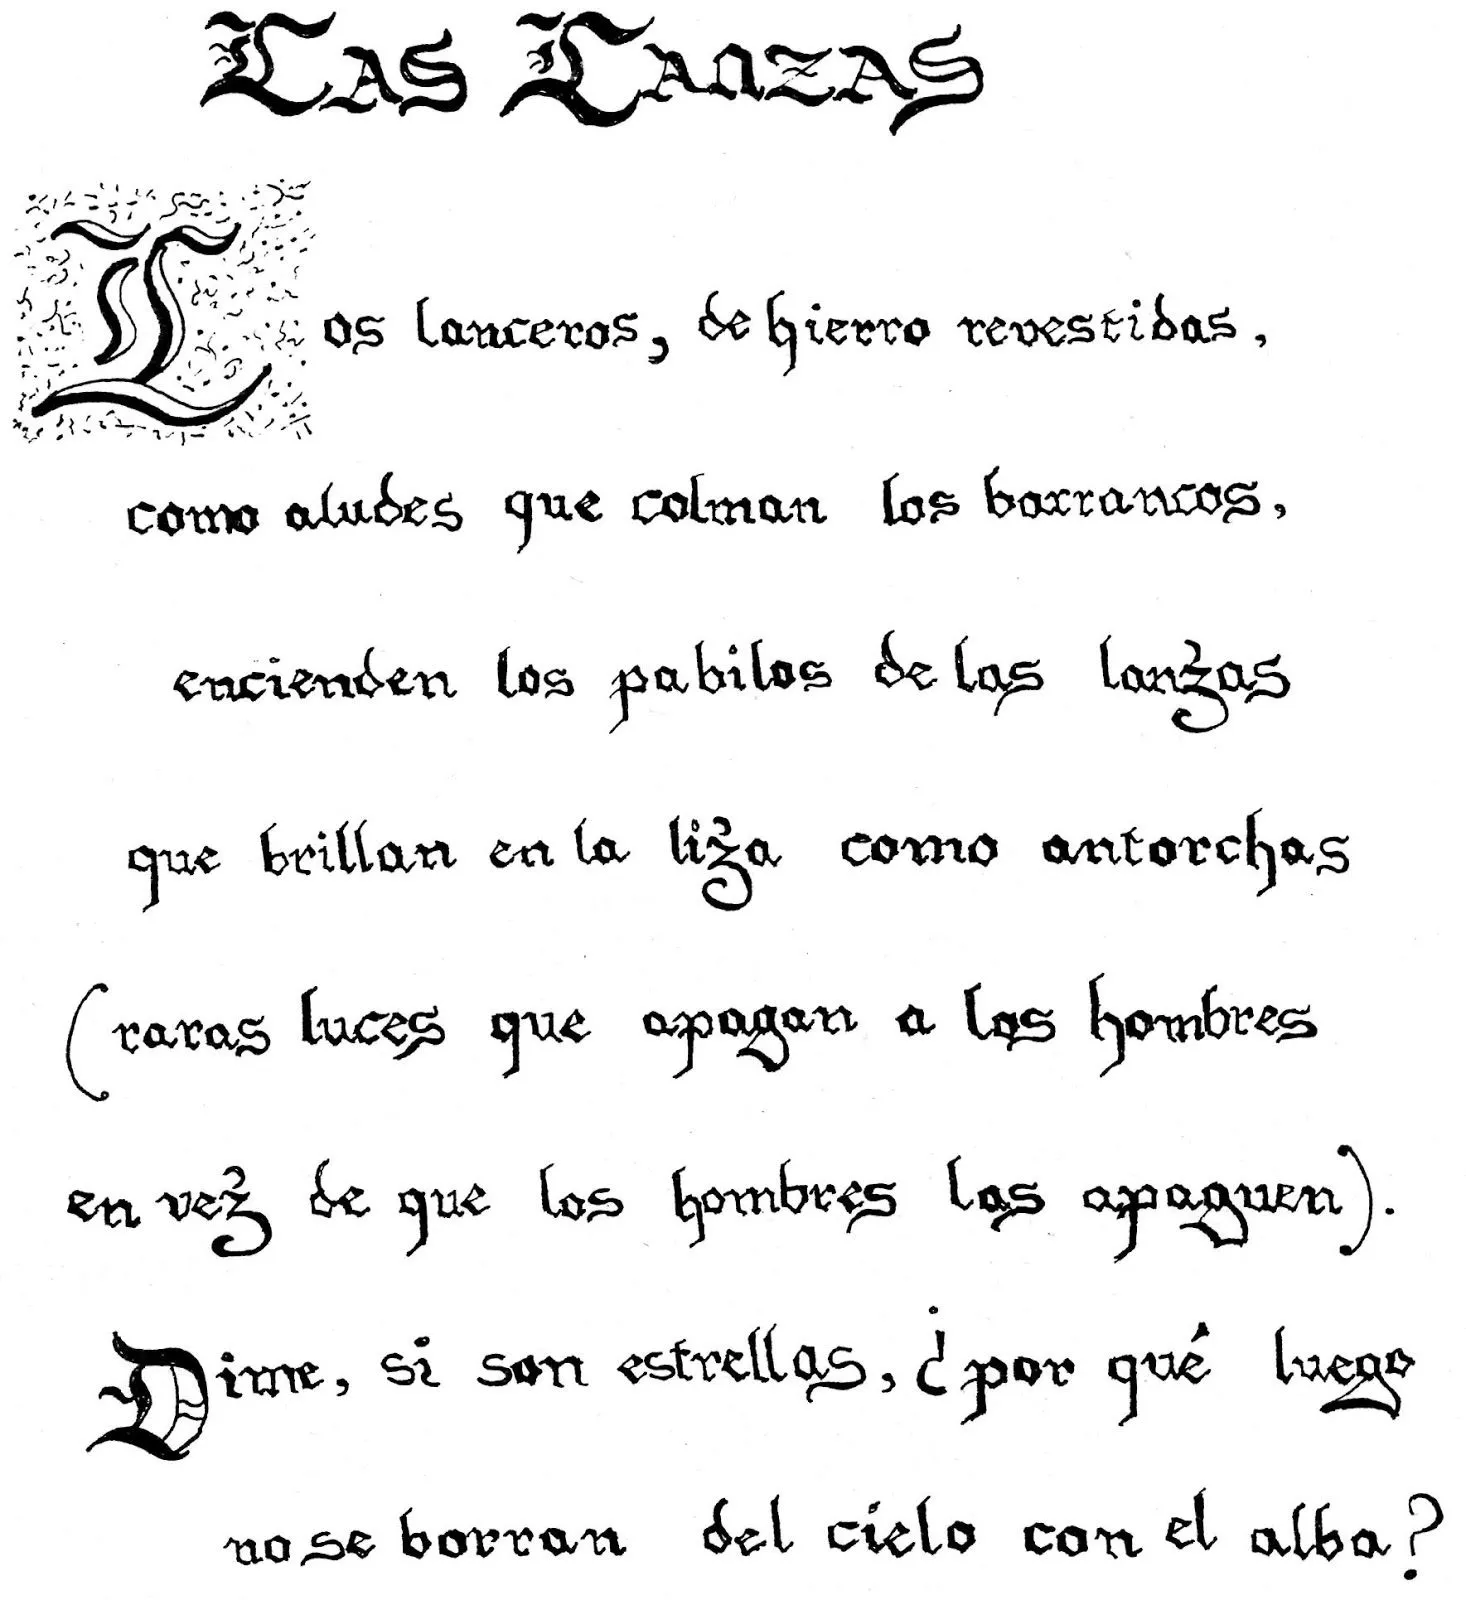 Las Lanzas
Los lanceros, de hierro revestidos,
como aludes que colman los barrancos,
encienden los pabilos de las lanzas
que brillan en la liza como antorchas
(raras luces que apagan a los hombres
en vez de que los hombres las apaguen).
Dime, si son estrellas, ¿por qué luego
no se borran del cielo con el alba?